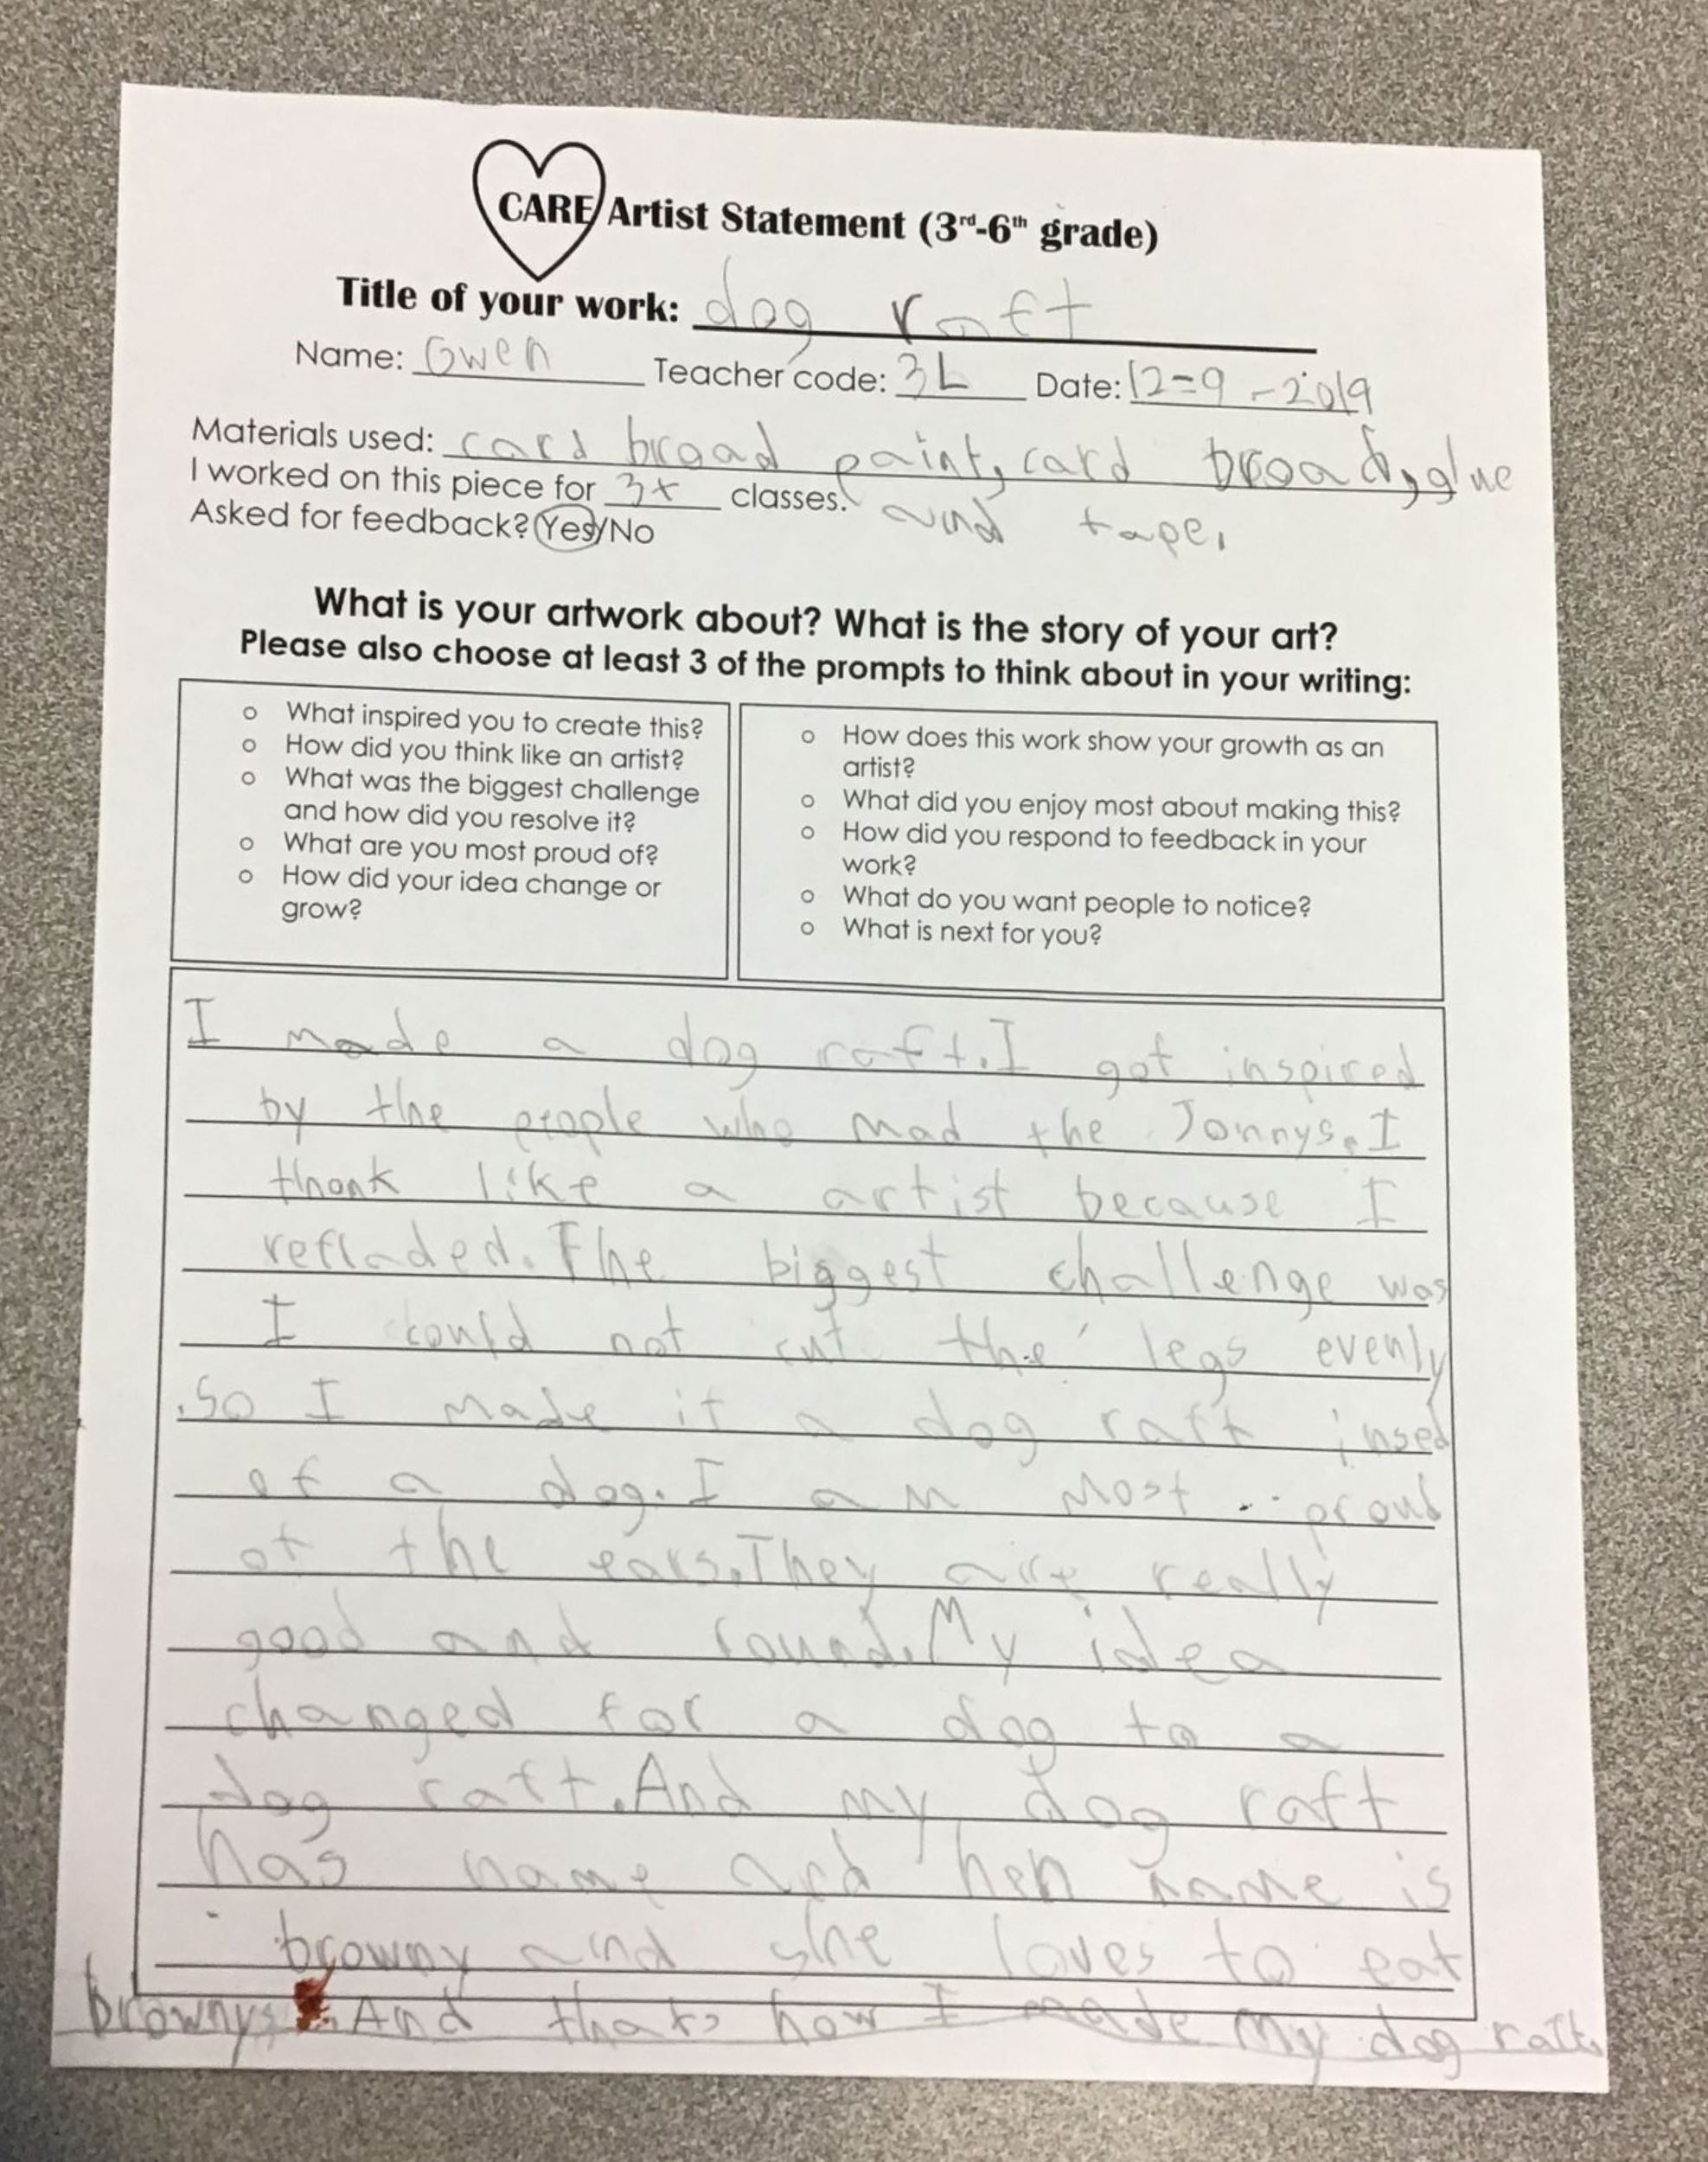 CARE Artist Statement (3rd-6th grade)
Title of your work: dog raft
Name: Gwen Teacher code: 3L Date: 12-9-2019
Materials used: card broad paint, card broad, glue
I worked on this piece for 3x classes. and tape.
Asked for feedback? Yes/No
What is your artwork about? What is the story of your art?
Please also choose at least 3 of the prompts to think about in your writing:
o What inspired you to create this?
o How did you think like an artist?
o What was the biggest challenge
and how did you resolve it?
o What are you most proud of?
o How did your idea change or
grow?
o How does this work show your growth as an
artist?
o What did you enjoy most about making this?
o How did you respond to feedback in your
work?
o What do you want people to notice?
o What is next for you?
I made a dog raft. I got inspired
by the people who mad the Jonnys. I
thonk like a artist because I
refladed. The biggest challenge was
I could not cut the legs evenly
.so I made it a dog raft insed
of a dog. I am most proud
of the ears. They are really
good and round. My idea
changed for a dog to a
dog raft. And my dog raft
has name and her name is
browny and she loves to eat
brownys. And thats how I made my dog raft.